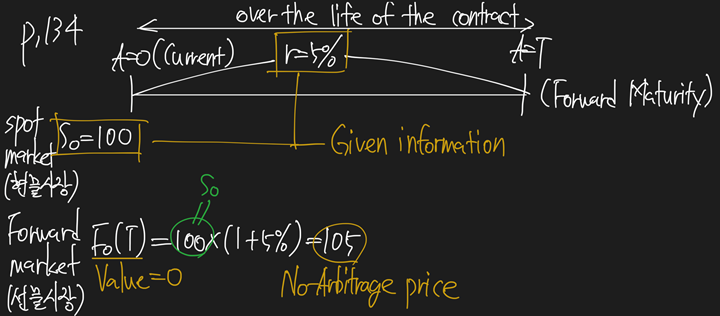 p.134
over the life of the contract
t=0 (Current)
r=5%
t=T
(Forward Maturity)
spot
market
(현물시장)
S₀=100
Given information
S₀
Forward
market
(선물시장)
F₀(T) = 100×(1+5%) = 105
Value=0
No-Arbitrage price